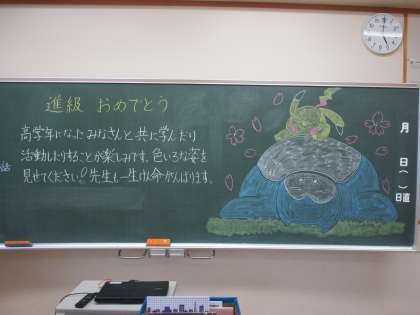 進級 おめでとう
高学年になった みなさんと 共に学んだり
活動したりすることが楽しみです。色いろな姿を
見せてください!先生も一生けん命がんばります。
月
日
( )
日直